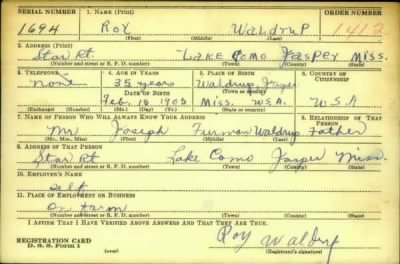 SERIAL NUMBER 1. NAME (Print) ORDER NUMBER
1694 Roy Waldrup 1412
(First) (Middle) (Last)
2. ADDRESS (Print)
Star Rt. Lake Como Jasper Miss.
(Number and street or R. F. D. number) (Town) (County) (State)
3. TELEPHONE 4. AGE IN YEARS 5. PLACE OF BIRTH 6. COUNTRY OF CITIZENSHIP
None 35 years Waldrup Jasper
DATE OF BIRTH (Town or county)
Feb. 16 1905 Miss. U.S.A. U.S.A
(Exchange) (Number) (Mo.) (Day) (Yr.) (State or country)
7. NAME OF PERSON WHO WILL ALWAYS KNOW YOUR ADDRESS 8. RELATIONSHIP OF THAT PERSON
Mr Joseph Furman Waldrup Father
(Mr., Mrs., Miss) (First) (Middle) (Last)
9. ADDRESS OF THAT PERSON
Star Rt Lake Como Jasper Miss.
(Number and street or R. F. D. number) (Town) (County) (State)
10. EMPLOYER'S NAME
Self
11. PLACE OF EMPLOYMENT OR BUSINESS
On farm
(Number and street or R. F. D. number) (Town) (County) (State)
I AFFIRM THAT I HAVE VERIFIED ABOVE ANSWERS AND THAT THEY ARE TRUE.
REGISTRATION CARD Roy Waldrup
D. S. S. Form 1 (over) (Registrant's signature)